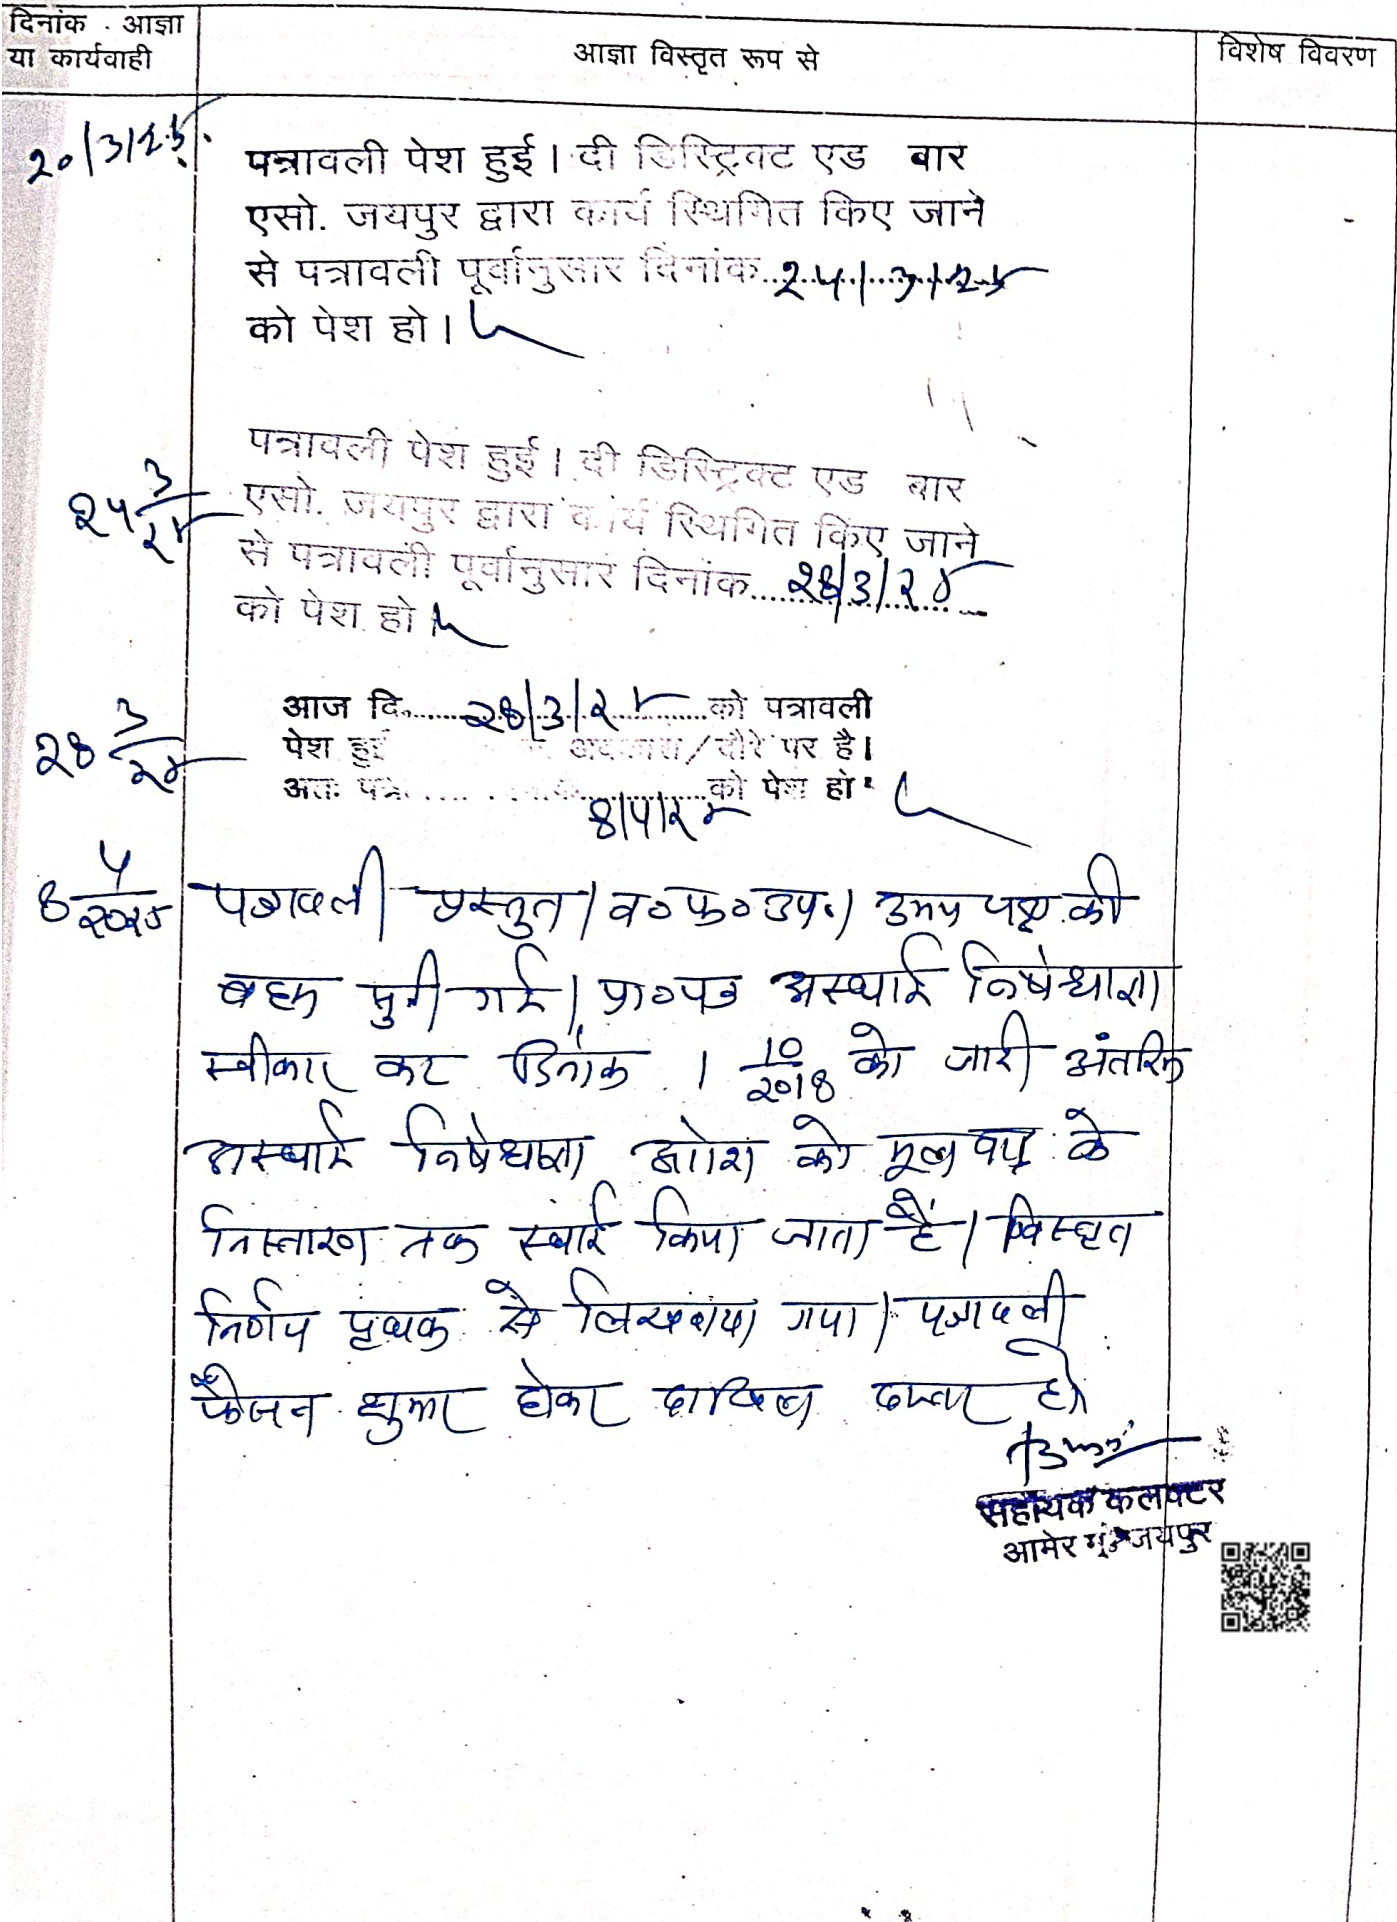 दिनांक . आज्ञा
या कार्यवाही
आज्ञा विस्तृत रूप से
विशेष विवरण
20/3/25
पत्रावली पेश हुई। दी डिस्ट्रिक्ट एड बार
एसो. जयपुर द्वारा कार्य स्थिगित किए जाने
से पत्रावली पूर्वानुसार दिनांक..24/3/25
को पेश हो।
24 3/25
पत्रावली पेश हुई। दी डिस्ट्रिक्ट एड बार
एसो. जयपुर द्वारा कार्य स्थिगित किए जाने
से पत्रावली पूर्वानुसार दिनांक....28/3/25
को पेश हो।
28 3/25
आज दि....28/3/25....को पत्रावली
पेश हुई अवकाश/दौरे पर है।
अतः पत्रा.......को पेश हो।
8/4/25
8 4/2025
पत्रावली प्रस्तुत। व०फ०उप०। उभय पक्ष की
बहस सुनी गई। प्रा०पत्र अस्थाई निषेधाज्ञा
स्वीकार कर दिनांक 1 10/2018 को जारी अंतरिम
अस्थाई निषेधाज्ञा आदेश को मूल वाद के
निस्तारण तक स्थाई किया जाता है। विस्तृत
निर्णय पृथक से लिखवाया गया। पत्रावली
फैसल शुमार होकर दाखिल दफ्तर हो।
सहायक कलक्टर
आमेर जयपुर